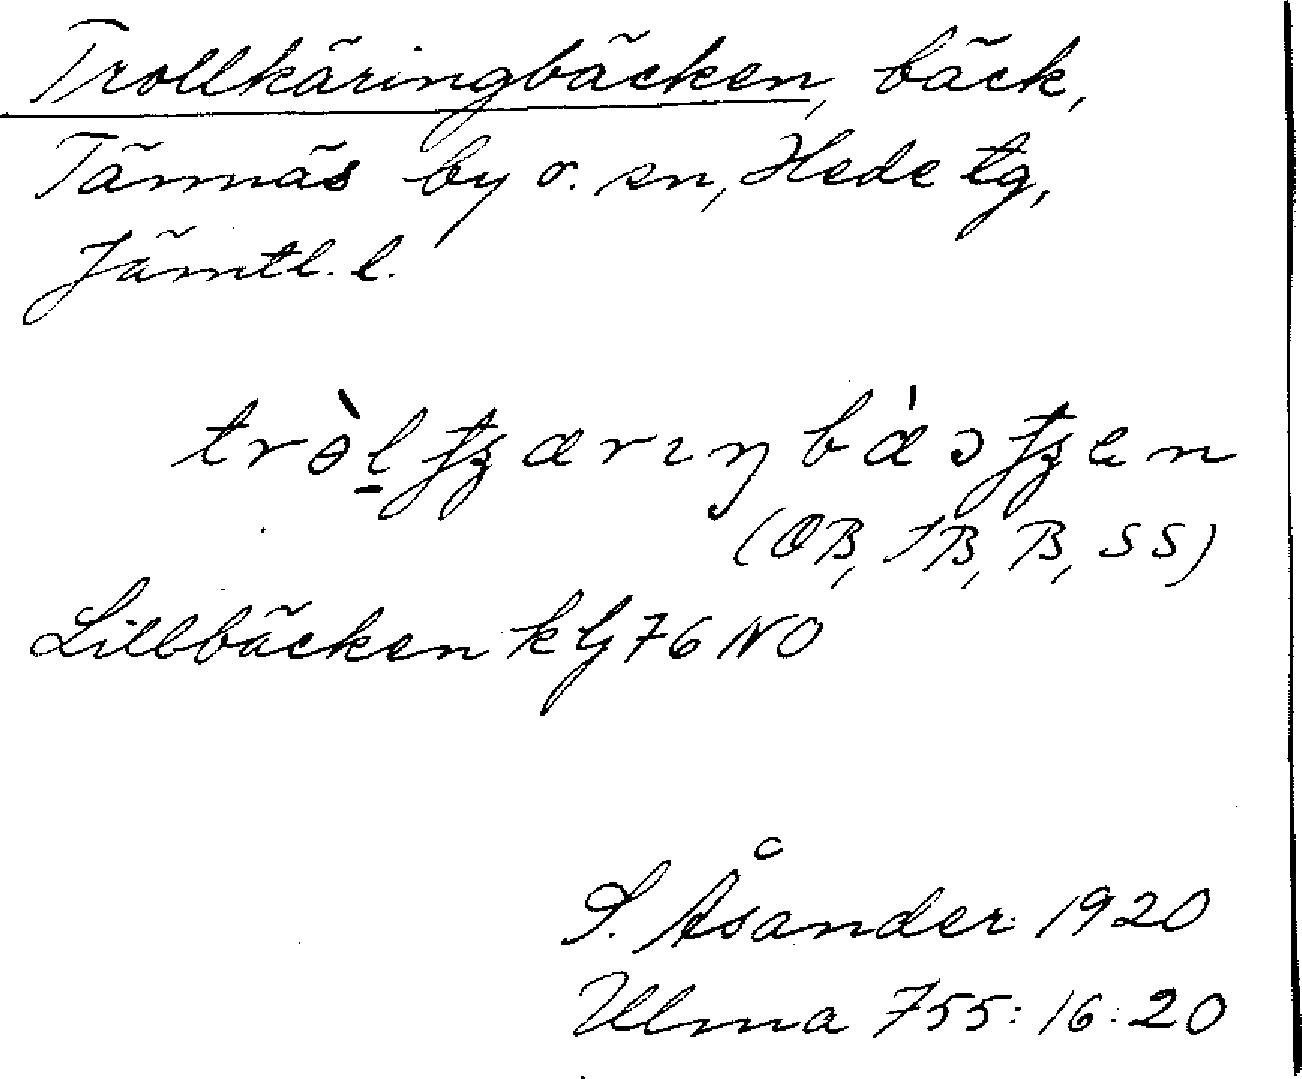 Trollkäringbäcken, bäck,
Tännäs by o. sn, Hede tg,
Jämtl. l.
(OB, JB, B, SS)
Lillbäcken k Ly 76 NO
S. Åsander 1920
Ulma 755:16:20